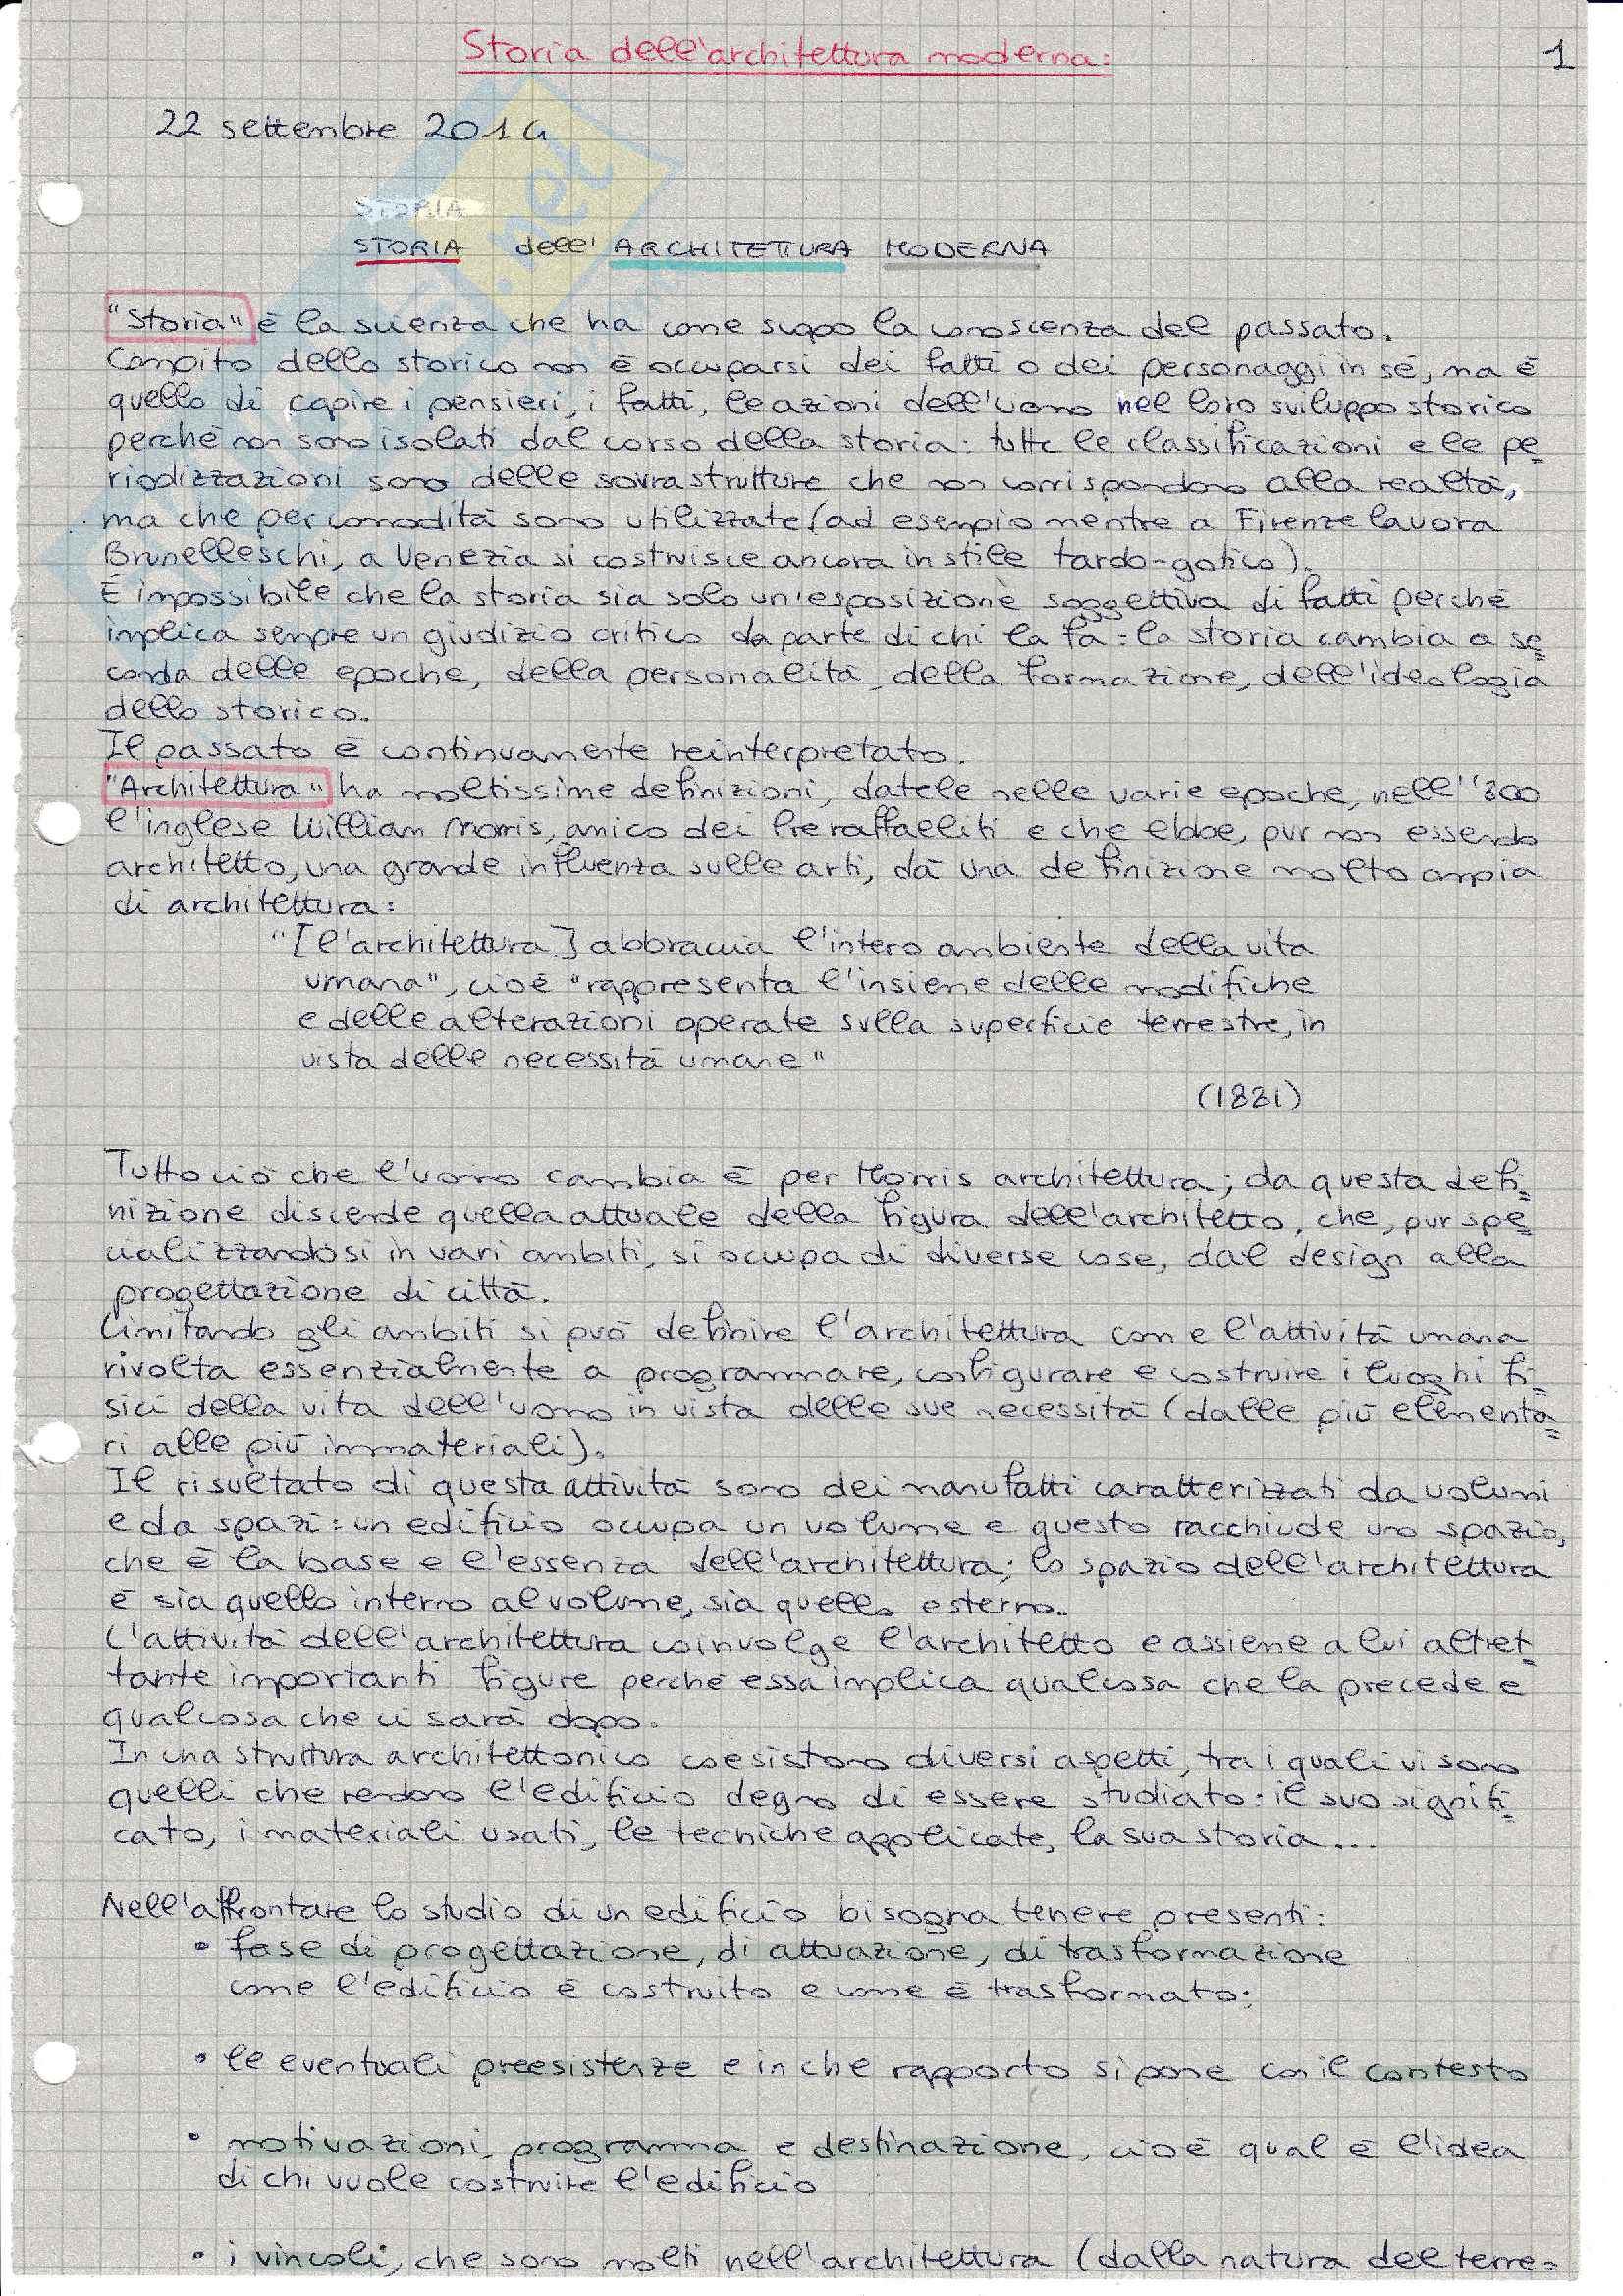 Storia dell'architettura moderna:
1
22 settembre 2014
STORIA
STORIA dell'ARCHITETTURA MODERNA
"Storia" è la scienza che ha come scopo la conoscenza del passato.
Compito dello storico non è occuparsi dei fatti o dei personaggi in sé, ma è
quello di capire i pensieri, i fatti, le azioni dell'uomo nel loro sviluppo storico
perché non sono isolati dal corso della storia: tutte le classificazioni e le pe=
riodizzazioni sono delle sovrastrutture che non corrispondono alla realtà,
ma che per comodità sono utilizzate (ad esempio mentre a Firenze lavora
Brunelleschi, a Venezia si costruisce ancora in stile tardo-gotico).
È impossibile che la storia sia solo un'esposizione soggettiva di fatti perché
implica sempre un giudizio critico da parte di chi la fa: la storia cambia a se=
conda delle epoche, della personalità, della formazione, dell'ideologia
dello storico.
Il passato è continuamente reinterpretato.
"Architettura" ha moltissime definizioni, datele nelle varie epoche, nell''800
l'inglese William Morris, amico dei Preraffaelliti e che ebbe, pur non essendo
architetto, una grande influenza sulle arti, dà una definizione molto ampia
di architettura:
"[l'architettura] abbraccia l'intero ambiente della vita
umana", cioè "rappresenta l'insieme delle modifiche
e delle alterazioni operate sulla superficie terrestre, in
vista delle necessità umane"
(1881)
Tutto ciò che l'uomo cambia è per Morris architettura; da questa defi=
nizione discende quella attuale della figura dell'architetto, che, pur spe=
cializzandosi in vari ambiti, si occupa di diverse cose, dal design alla
progettazione di città.
Limitando gli ambiti si può definire l'architettura come l'attività umana
rivolta essenzialmente a programmare, configurare e costruire i luoghi fi=
sici della vita dell'uomo in vista delle sue necessità (dalle più elementa=
ri alle più immateriali).
Il risultato di questa attività sono dei manufatti caratterizzati da volumi
e da spazi: un edificio occupa un volume e questo racchiude uno spazio,
che è la base e l'essenza dell'architettura; lo spazio dell'architettura
è sia quello interno al volume, sia quello esterno.
L'attività dell'architettura coinvolge l'architetto e assieme a lui altret=
tante importanti figure perché essa implica qualcosa che la precede e
qualcosa che ci sarà dopo.
In una struttura architettonica coesistono diversi aspetti, tra i quali vi sono
quelli che rendono l'edificio degno di essere studiato: il suo signifi=
cato, i materiali usati, le tecniche applicate, la sua storia...
Nell'affrontare lo studio di un edificio bisogna tenere presenti:
• fase di progettazione, di attuazione, di trasformazione
come l'edificio è costruito e come è trasformato;
• le eventuali preesistenze e in che rapporto si pone con il contesto
• motivazioni, programma e destinazione, cioè qual è l'idea
di chi vuole costruire l'edificio
• i vincoli, che sono molti nell'architettura (dalla natura del terre=